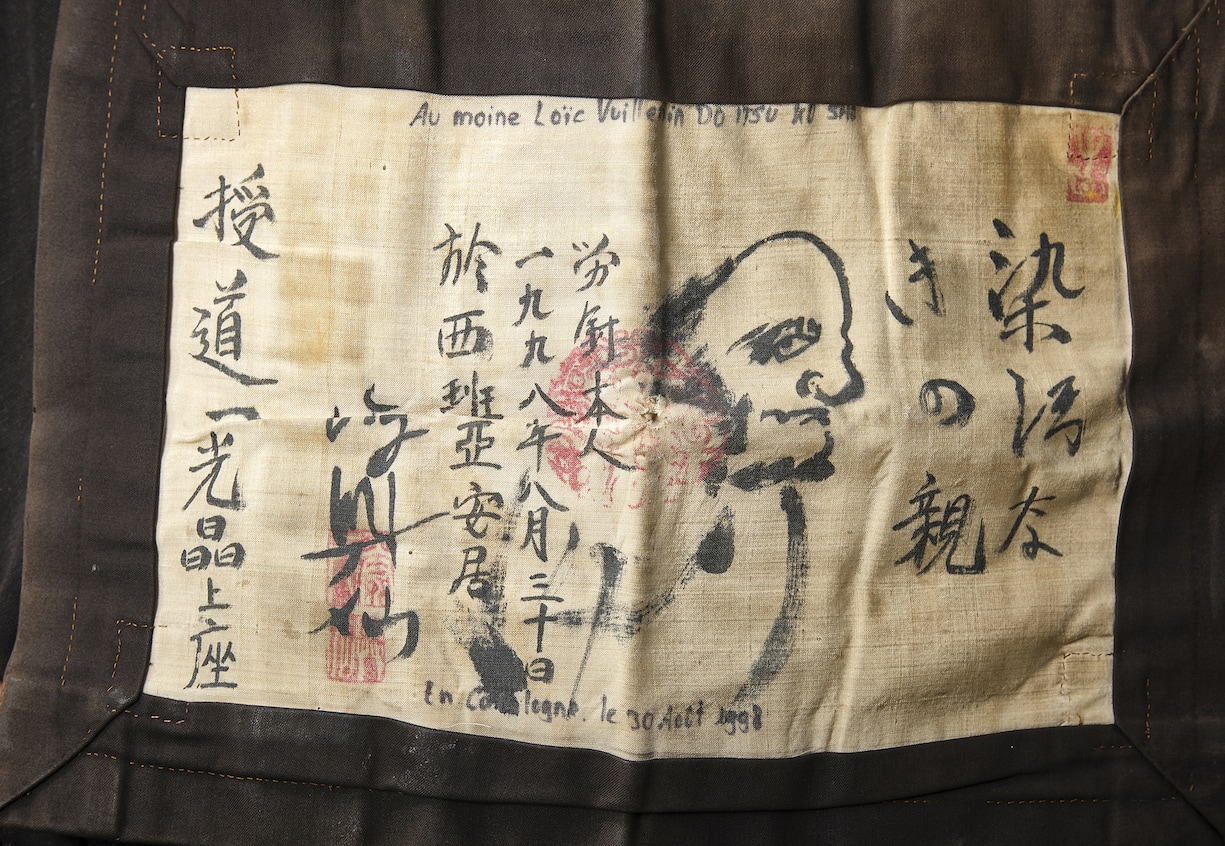 Au moine Loïc Vuillemin DO ITSU KO SHO
染汚な
きの親
労針本人
一九九八年八月三十日
於西班亞安居
授道一光晶上座
En Catalogne, le 30 Août 1998